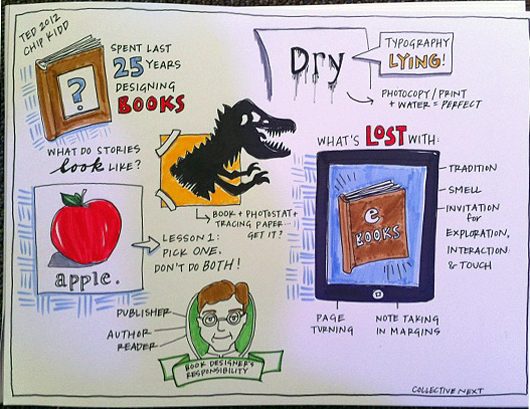 TED 2012
CHIP KIDD
?
SPENT LAST
25 YEARS
DESIGNING
BOOKS
Dry
TYPOGRAPHY
LYING!
PHOTOCOPY/PRINT
+ WATER = PERFECT
WHAT DO STORIES
look LIKE?
BOOK + PHOTOSTAT +
TRACING PAPER...
GET IT?
apple.
LESSON 1:
PICK ONE,
DON'T DO BOTH!
PUBLISHER
AUTHOR
READER
BOOK DESIGNER'S
RESPONSIBILITY
WHAT'S LOST WITH:
e
BOOKS
TRADITION
SMELL
INVITATION
for
EXPLORATION,
INTERACTION
& TOUCH
PAGE
TURNING
NOTE TAKING
IN MARGINS
COLLECTIVE NEXT